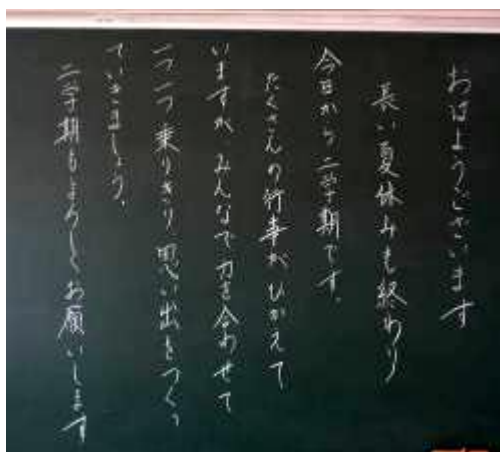 おはようございます
長い夏休みも終わり
今日から二学期です。
たくさんの行事がひかえて
いますが、みんなで力を合わせて
一つ一つ乗りきり思い出をつくっ
ていきましょう。
二学期もよろしくお願いします